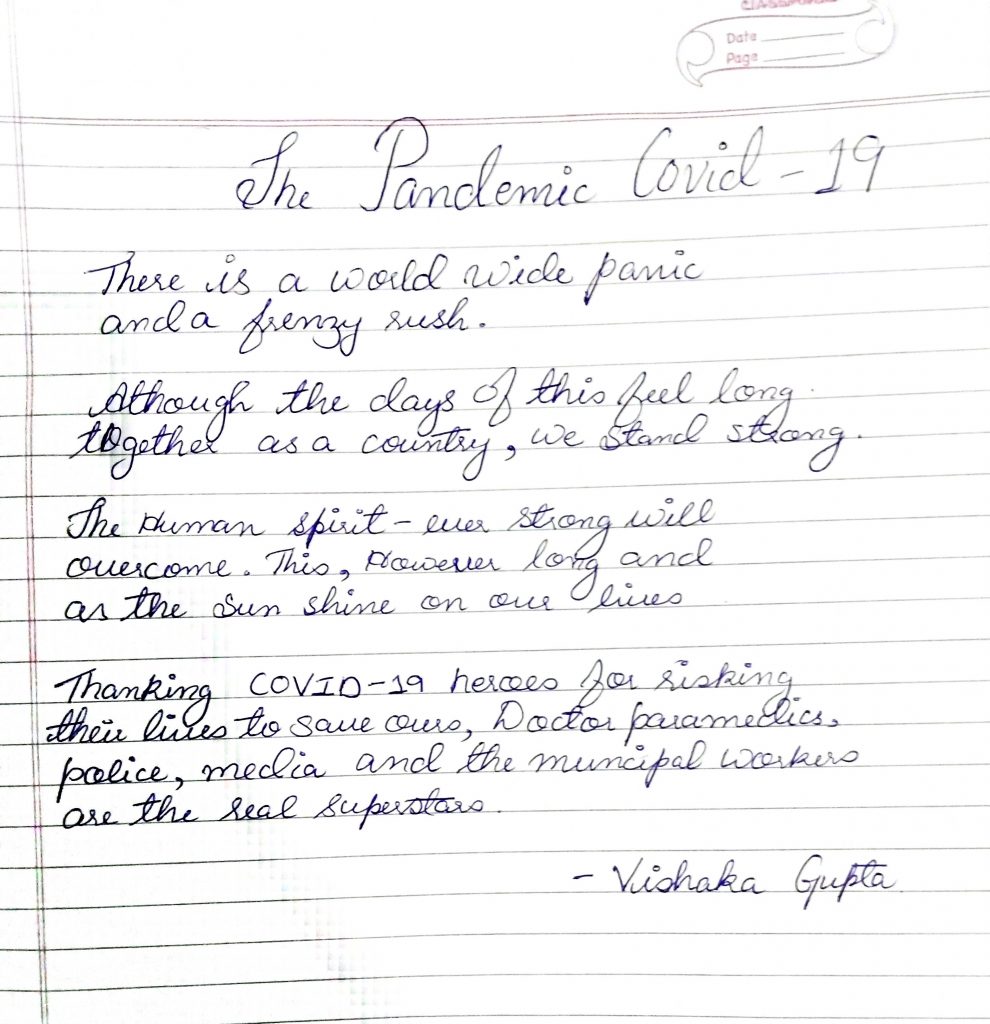 CLASSMATE
Date
Page
The Pandemic Covid - 19
There is a world wide panic
and a frenzy rush.
Although the days of this feel long.
together as a country, we stand strong.
The Human spirit - ever strong will
overcome. This, However long and
as the Sun shine on our lives
Thanking COVID-19 heroes for risking
their lives to save ours, Doctor paramedics,
police, media and the muncipal workers
are the real superstars.
- Vishaka Gupta.